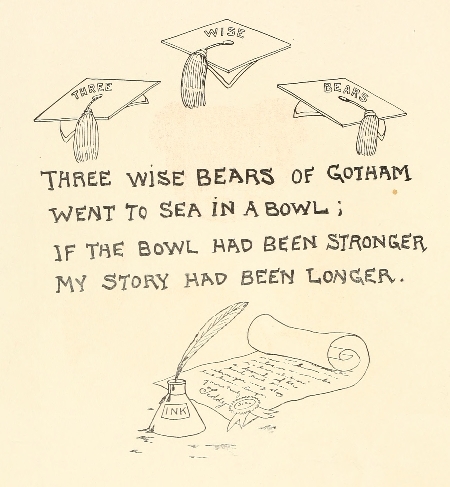 THREE WISE BEARS
THREE WISE BEARS OF GOTHAM
WENT TO SEA IN A BOWL;
IF THE BOWL HAD BEEN STRONGER
MY STORY HAD BEEN LONGER.
INK
Teddy